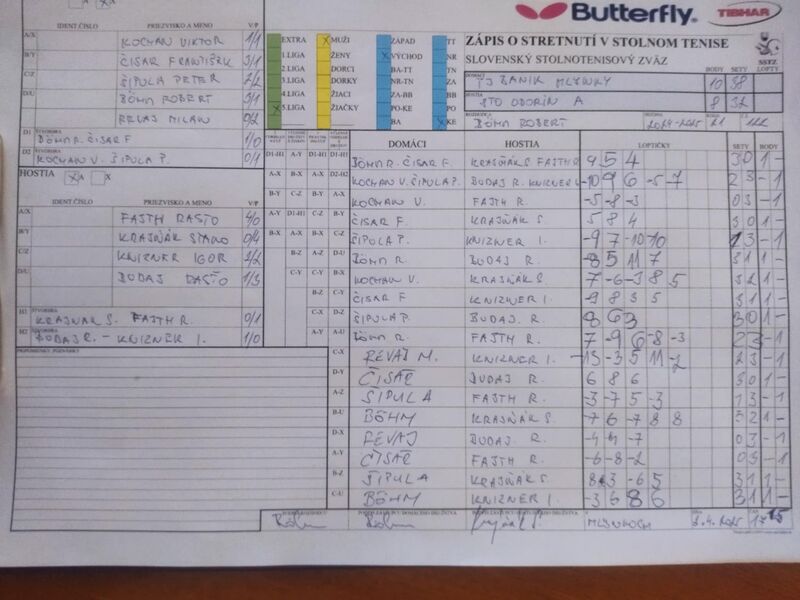 Butterfly.
TIBHAR
ZÁPIS O STRETNUTÍ V STOLNOM TENISE
SLOVENSKÝ STOLNOTENISOVÝ ZVÄZ
SSTZ
BODY SETY LOPTY
DOMÁCI TJ BANÍK MLYNKY 10 38
HOSTIA STO ODORÍN A 8 32
BÖHM ROBERT 2024-2025
IDENT ČÍSLO PRIEZVISKO A MENO V/P
A/X KOCHAN VIKTOR 1/1
B/Y ČISÁR FRANTIŠEK 3/1
C/Z ŠIPULA PETER 2/2
D/U BÖHM ROBERT 3/1
REVAJ MILAN 0/2
D1 ŠTVORHRA BÖHM R. ČISÁR F 1/0
D2 ŠTVORHRA KOCHAN V. ŠIPULA P. 0/1
EXTRA
1.LIGA
2.LIGA
3.LIGA
4.LIGA
5.LIGA
MUŽI
ŽENY
DORCI
DORKY
ŽIACI
ŽIAČKY
ZÁPAD
VÝCHOD
BA-TT
NR-TN
ZA-BB
PO-KE
BA
TT
NR
TN
ZA
BB
PO
KE
HOSTIA A X
IDENT ČÍSLO PRIEZVISKO A MENO V/P
A/X FAJTH RASŤO 4/0
B/Y KRAJŇÁK STANO 0/4
C/Z KNIZNER IGOR 2/2
D/U BUDAJ DAŠŤO 1/3
H1 ŠTVORHRA KRAJŇÁK S. FAJTH R. 0/1
H2 ŠTVORHRA BUDAJ R. - KNIZNER I. 1/0
PRIPOMIENKY, POZNÁMKY
DOMÁCI HOSTIA LOPTIČKY SETY BODY
D1-H1 BÖHM R. ČISÁR F. KRAJŇÁK S FAJTH R 9 5 4 3 0 1 -
D2-H2 KOCHAN V. ŠIPULA P. BUDAJ R. KNIZNER I. -10 9 6 -5 -7 2 3 - 1
A-X KOCHAN V. FAJTH R. -5 -8 -3 0 3 - 1
B-Y ČISÁR F. KRAJŇÁK S. 5 8 4 3 0 1 -
C-Z ŠIPULA P. KNIZNER I. -9 7 -10 -10 1 3 - 1
D-U BÖHM R. BUDAJ R. -8 5 11 7 3 1 1 -
B-X KOCHAN V KRAJŇÁK S 7 -6 -3 8 5 3 2 1 -
C-Y ČISÁR F KNIZNER I. -9 8 3 5 3 1 1 -
D-Z ŠIPULA P. BUDAJ R. 8 6 3 3 0 1 -
A-U BÖHM R. FAJTH R. 7 -9 6 -8 -3 2 3 - 1
C-X REVAJ M. KNIZNER I. -13 -3 5 11 -2 2 3 - 1
D-Y ČISÁR BUDAJ R. 6 8 6 3 0 1 -
A-Z ŠIPULA FAJTH R. -3 -7 5 -3 1 3 - 1
B-U BÖHM KRAJŇÁK S. -7 6 -7 8 8 3 2 1 -
D-X REVAJ BUDAJ R. -4 -4 -7 0 3 - 1
A-Y ČISÁR FAJTH R. -6 -8 -2 0 3 - 1
B-Z ŠIPULA KRAJŇÁK S 8 3 -6 5 3 1 1 -
C-U BÖHM KNIZNER I. -3 6 8 6 3 1 1 -